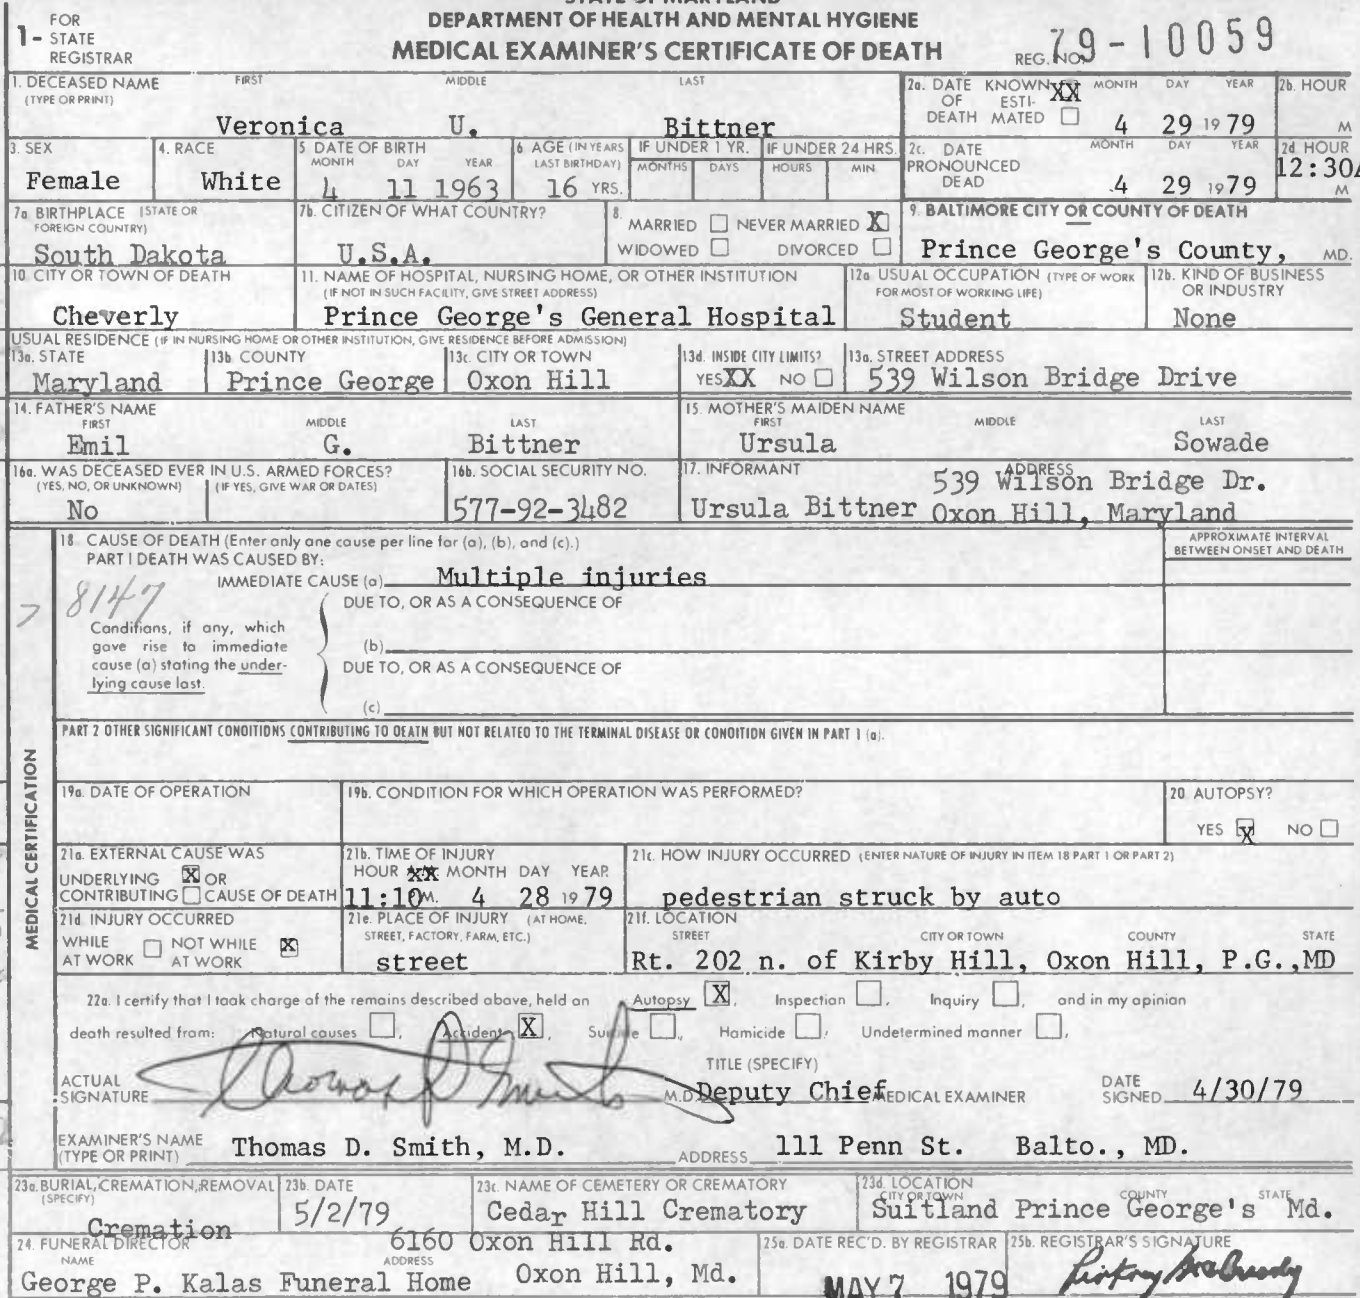 STATE OF MARYLAND
DEPARTMENT OF HEALTH AND MENTAL HYGIENE
MEDICAL EXAMINER'S CERTIFICATE OF DEATH
1- FOR STATE REGISTRAR
REG. NO. 79-10059
1. DECEASED NAME (TYPE OR PRINT) FIRST MIDDLE LAST
Veronica U. Bittner
2a. DATE OF DEATH KNOWN XX ESTIMATED ☐ MONTH DAY YEAR
4 29 1979
2b. HOUR
M
3. SEX
Female
4. RACE
White
5 DATE OF BIRTH MONTH DAY YEAR
4 11 1963
6 AGE (IN YEARS LAST BIRTHDAY)
16 YRS.
IF UNDER 1 YR. MONTHS DAYS
IF UNDER 24 HRS. HOURS MIN.
2c. DATE PRONOUNCED DEAD MONTH DAY YEAR
4 29 1979
2d HOUR
12:30A
M
7a BIRTHPLACE (STATE OR FOREIGN COUNTRY)
South Dakota
7b. CITIZEN OF WHAT COUNTRY?
U.S.A.
8. MARRIED ☐ NEVER MARRIED X
WIDOWED ☐ DIVORCED ☐
9. BALTIMORE CITY OR COUNTY OF DEATH
Prince George's County, MD.
10. CITY OR TOWN OF DEATH
Cheverly
11. NAME OF HOSPITAL, NURSING HOME, OR OTHER INSTITUTION
(IF NOT IN SUCH FACILITY, GIVE STREET ADDRESS)
Prince George's General Hospital
12a. USUAL OCCUPATION (TYPE OF WORK FOR MOST OF WORKING LIFE)
Student
12b. KIND OF BUSINESS OR INDUSTRY
None
USUAL RESIDENCE (IF IN NURSING HOME OR OTHER INSTITUTION, GIVE RESIDENCE BEFORE ADMISSION)
13a. STATE
Maryland
13b. COUNTY
Prince George
13c. CITY OR TOWN
Oxon Hill
13d. INSIDE CITY LIMITS?
YES XX NO ☐
13a. STREET ADDRESS
539 Wilson Bridge Drive
14. FATHER'S NAME FIRST MIDDLE LAST
Emil G. Bittner
15. MOTHER'S MAIDEN NAME FIRST MIDDLE LAST
Ursula Sowade
16a. WAS DECEASED EVER IN U.S. ARMED FORCES?
(YES, NO, OR UNKNOWN) (IF YES, GIVE WAR OR DATES)
No
16b. SOCIAL SECURITY NO.
577-92-3482
17. INFORMANT ADDRESS
539 Wilson Bridge Dr.
Ursula Bittner Oxon Hill, Maryland
MEDICAL CERTIFICATION
18 CAUSE OF DEATH (Enter only one cause per line for (a), (b), and (c).)
APPROXIMATE INTERVAL BETWEEN ONSET AND DEATH
PART I DEATH WAS CAUSED BY:
IMMEDIATE CAUSE (a) Multiple injuries
8147
DUE TO, OR AS A CONSEQUENCE OF
Conditions, if any, which
gave rise to immediate
cause (a) stating the under-
lying cause last.
(b)
DUE TO, OR AS A CONSEQUENCE OF
(c)
PART 2 OTHER SIGNIFICANT CONDITIONS CONTRIBUTING TO DEATH BUT NOT RELATED TO THE TERMINAL DISEASE OR CONDITION GIVEN IN PART 1 (a).
19a. DATE OF OPERATION
19b. CONDITION FOR WHICH OPERATION WAS PERFORMED?
20 AUTOPSY?
YES X NO ☐
21a. EXTERNAL CAUSE WAS
UNDERLYING X OR
CONTRIBUTING ☐ CAUSE OF DEATH
21b. TIME OF INJURY
HOUR XX MONTH DAY YEAR
11:10 P.M. 4 28 1979
21c. HOW INJURY OCCURRED (ENTER NATURE OF INJURY IN ITEM 18 PART 1 OR PART 2)
pedestrian struck by auto
21d. INJURY OCCURRED
WHILE AT WORK ☐ NOT WHILE AT WORK X
21e. PLACE OF INJURY (AT HOME, STREET, FACTORY, FARM, ETC.)
street
21f. LOCATION
STREET CITY OR TOWN COUNTY STATE
Rt. 202 n. of Kirby Hill, Oxon Hill, P.G.,MD
22a. I certify that I took charge of the remains described above, held an Autopsy X, Inspection ☐, Inquiry ☐, and in my opinion
death resulted from: Natural causes ☐, Accident X, Suicide ☐, Homicide ☐, Undetermined manner ☐,
ACTUAL SIGNATURE Thomas D Smith M.D.
TITLE (SPECIFY)
Deputy Chief MEDICAL EXAMINER
DATE SIGNED 4/30/79
EXAMINER'S NAME (TYPE OR PRINT) Thomas D. Smith, M.D.
ADDRESS 111 Penn St. Balto., MD.
23a. BURIAL, CREMATION, REMOVAL (SPECIFY)
Cremation
23b. DATE
5/2/79
23c. NAME OF CEMETERY OR CREMATORY
Cedar Hill Crematory
23d. LOCATION
CITY OR TOWN COUNTY STATE
Suitland Prince George's Md.
24. FUNERAL DIRECTOR
NAME ADDRESS
6160 Oxon Hill Rd.
George P. Kalas Funeral Home Oxon Hill, Md.
25a. DATE REC'D. BY REGISTRAR
MAY 7 1979
25b. REGISTRAR'S SIGNATURE